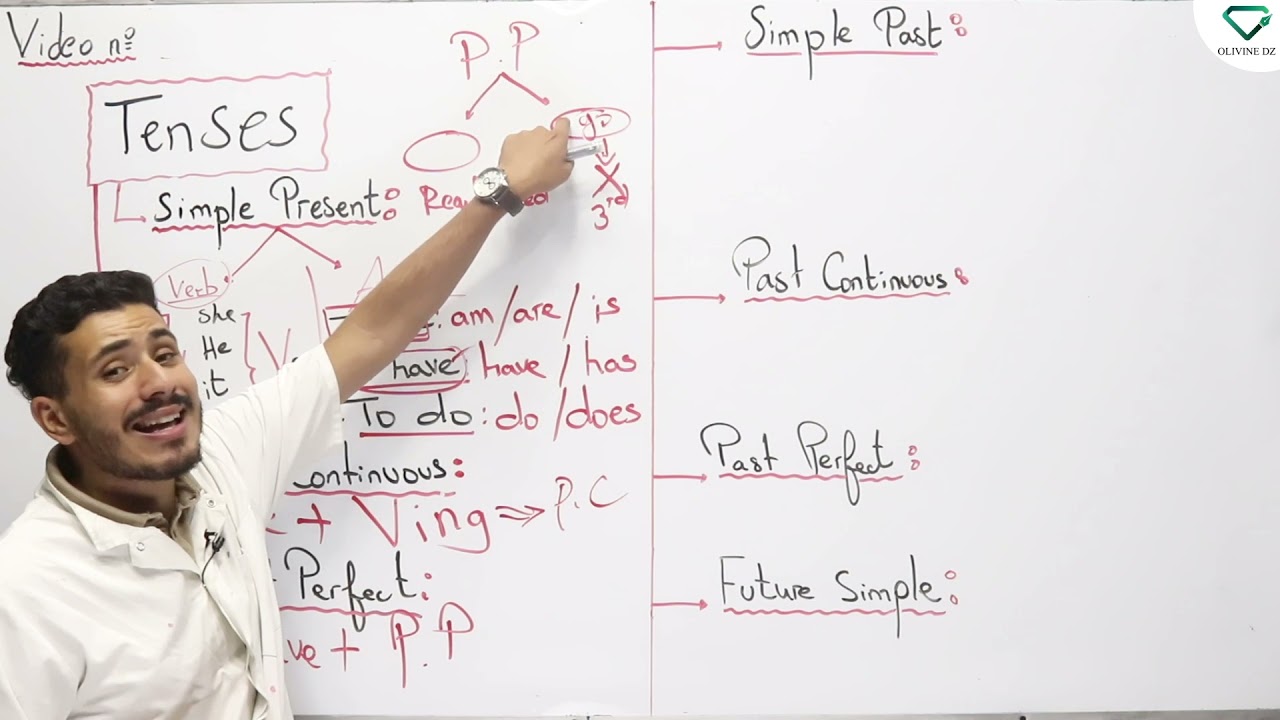 Video n:
Tenses
P.P
go
X
3rd
Simple Present:
Verb:
she
He
it
am/are/is
have: have / has
To do: do /does
continuous:
+ Ving ⇒ P.C
Perfect:
ve + P.P
Simple Past:
Past Continuous:
Past Perfect:
Future Simple:
OLIVINE DZ